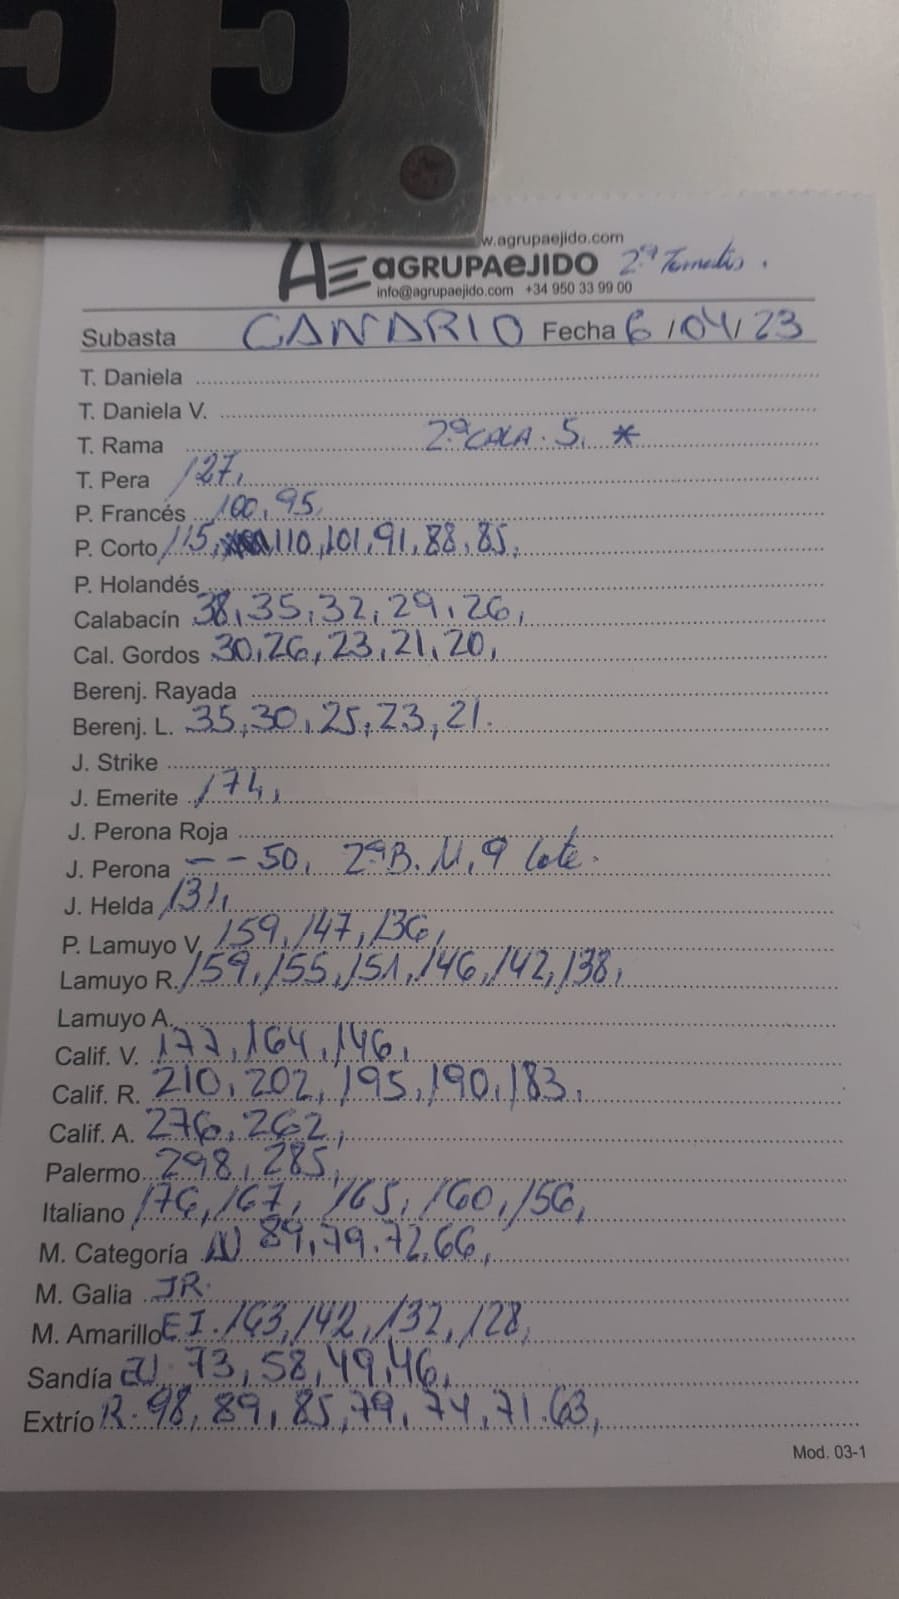 55
w.agrupaejido.com
AE aGRUPAeJIDO 2ª Tomates.
info@agrupaejido.com +34 950 33 99 00
Subasta CANARIO Fecha 6/04/23
T. Daniela
T. Daniela V.
T. Rama 2ª CALA. S. *
T. Pera 127,
P. Francés 100, 95,
P. Corto 115, 110, 101, 91, 88, 85,
P. Holandés
Calabacín 38, 35, 32, 29, 26,
Cal. Gordos 30, 26, 23, 21, 20,
Berenj. Rayada
Berenj. L. 35, 30, 25, 23, 21.
J. Strike
J. Emerite 174,
J. Perona Roja
J. Perona - - 50, 2ª B. M, 9 lote.
J. Helda 131,
P. Lamuyo V. 159, 147, 136,
Lamuyo R. 159, 155, 151, 146, 142, 138,
Lamuyo A.
Calif. V. 177, 164, 146,
Calif. R. 210, 202, 195, 190, 183,
Calif. A. 276, 262,
Palermo 298, 285,
Italiano 176, 167, 165, 160, 156,
M. Categoría 89, 79. 72, 66,
M. Galia JR.
M. Amarillo E I. 163, 142, 132, 128,
Sandía 73, 58, 49, 46,
Extrío R. 98, 89, 85, 79, 74, 71. 63,
Mod. 03-1